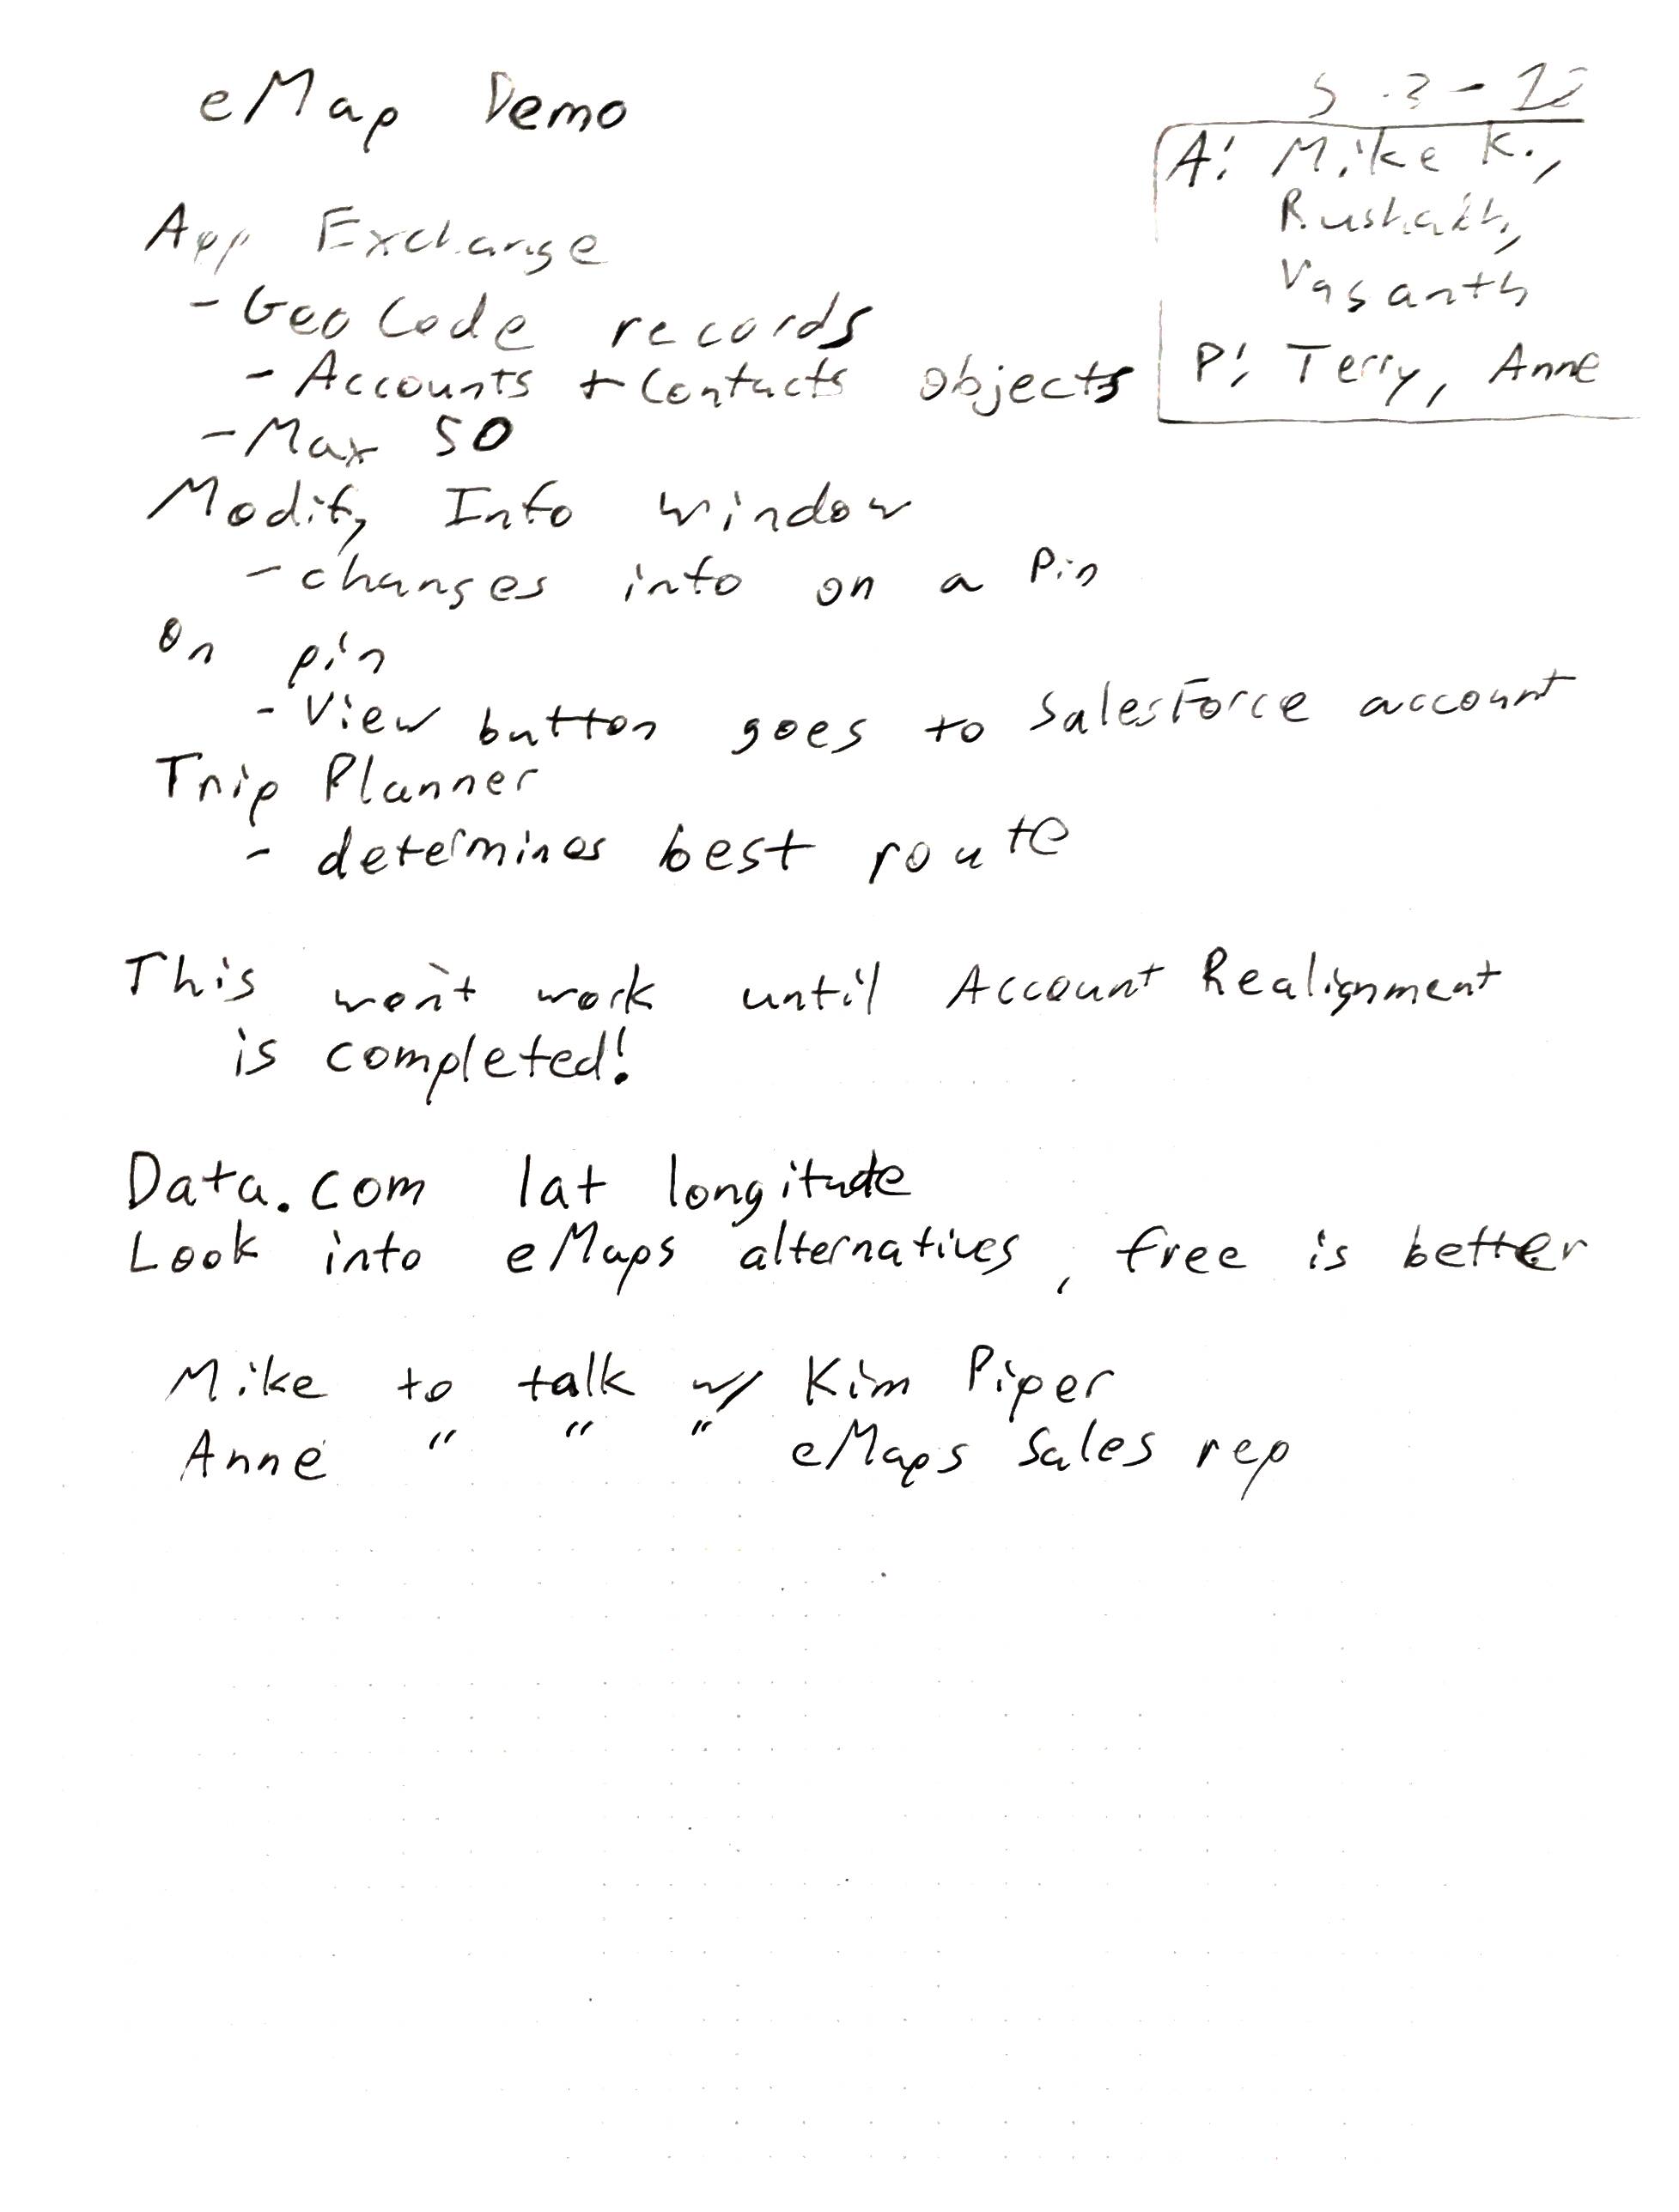 eMap Demo
A: Mike K.,
Vasanth
P: Terry, Anne
App Exchange
- GeoCode records
- Accounts + Contacts objects
- Max 50
Modify Info window
- changes info on a Pin
On pin
- View button goes to SalesForce account
Trip Planner
- determines best route
This won't work until Account Realignment
is completed!
Data.com lat longitude
Look into eMaps alternatives, free is better
Mike to talk w/ Kim Piper
Anne " " " eMaps sales rep